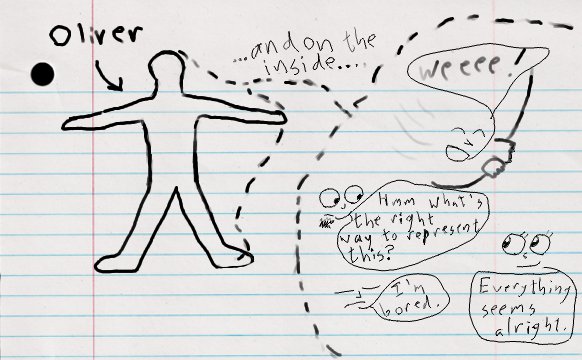 Oliver
...and on the
inside....
weeee!
Hmm what's
the right
way to represent
this?
I'm
bored.
Everything
seems
alright.